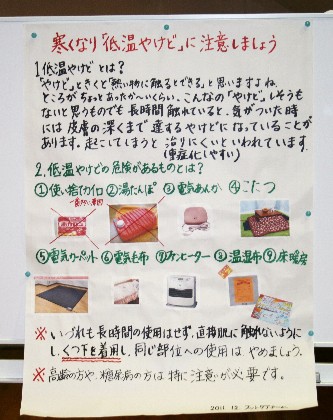 寒くなり「低温やけど」に注意しましょう
1.低温やけどとは?
「やけど」ときくと「熱い物に触るとできる」と思いますよね。
ところがちょっとあったか〜いくらい。こんなの「やけど」しそうも
ないと思うものでも長時間触れていると、気がついた時
には皮膚の深くまで達するやけどになっていることが
あります。起こしてしまうと治りにくいといわれています。
(重症化しやすい)
2.低温やけどの危険があるものとは?
①使い捨てカイロ ②湯たんぽ ③電気あんか ④こたつ
⑤電気カーペット ⑥電気毛布 ⑦ファンヒーター ⑧温湿布 ⑨床暖房
※いづれも長時間の使用はせず、直接肌に触れないように
し、くつ下を着用し、同じ部位への使用はやめましょう。
※高齢の方や、糖尿病の方は特に注意が必要です。
2011.12